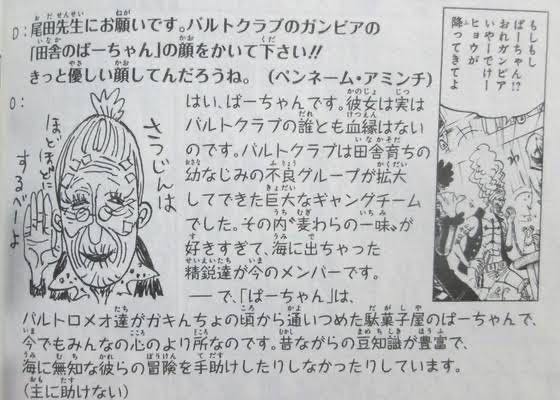 D：尾田先生にお願いです。バルトクラブのガンビアの
「田舎のばーちゃん」の顔をかいて下さい!!
きっと優しい顔してんだろうね。 (ペンネーム・アミンチ)
もしもし
ばーちゃん!?
おれガンビア
いやーでけー
ヒョウが
降ってきてよ
O：
さつじんは
ほどほどに
するべーよ
はい、ばーちゃんです。彼女は実は
バルトクラブの誰とも血縁はない
のです。バルトクラブは田舎育ちの
幼なじみの不良グループが拡大
してできた巨大なギャングチーム
でした。その内〝麦わらの一味〟が
好きすぎて、海に出ちゃった
精鋭達が今のメンバーです。
――で、「ばーちゃん」は、
バルトロメオ達がガキんちょの頃から通いつめた駄菓子屋のばーちゃんで、
今でもみんなの心のより所なのです。昔ながらの豆知識が豊富で、
海に無知な彼らの冒険を手助けしたりしなかったりしています。
(主に助けない)